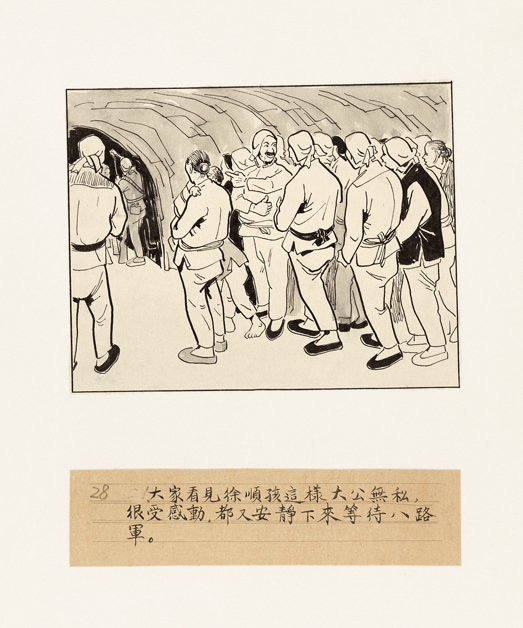 28 大家看見徐順孩這樣大公無私,
很受感動,都又安靜下來等待八路
軍。